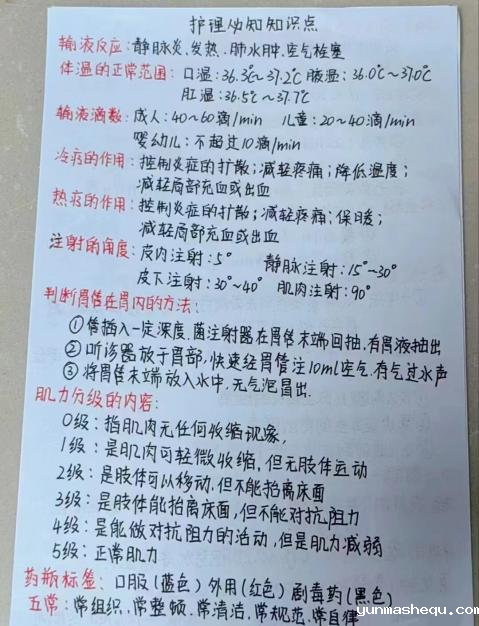 护理必知知识点
输液反应:静脉炎、发热、肺水肿、空气栓塞
体温的正常范围:口温:36.3℃~37.2℃ 腋温:36.0℃~37.0℃
肛温:36.5℃~37.7℃
输液滴数:成人:40~60滴/min 儿童:20~40滴/min
婴幼儿:不超过10滴/min
冷疗的作用:控制炎症的扩散;减轻疼痛;降低温度;
减轻局部充血或出血
热疗的作用:控制炎症的扩散;减轻疼痛;保暖;
减轻局部充血或出血
注射的角度:皮内注射:5° 静脉注射:15°~30°
皮下注射:30°~40° 肌肉注射:90°
判断胃管在胃内的方法:
①管插入一定深度,菌注射器在胃管末端回抽,有胃液抽出
②听诊器放于胃部,快速经胃管注10ml空气,有气过水声
③将胃管末端放入水中,无气泡冒出.
肌力分级的内容:
0级:指肌肉无任何收缩现象,
1级:是肌肉可轻微收缩,但无肢体运动
2级:是肢体可以移动,但不能抬离床面
3级:是肢体能抬离床面,但不能对抗阻力
4级:是能做对抗阻力的活动,但是肌力减弱
5级:正常肌力
药瓶标签:口服(蓝色)外用(红色)剧毒药(黑色)
五常:常组织,常整顿,常清洁,常规范,常自律
yunmashequ.com